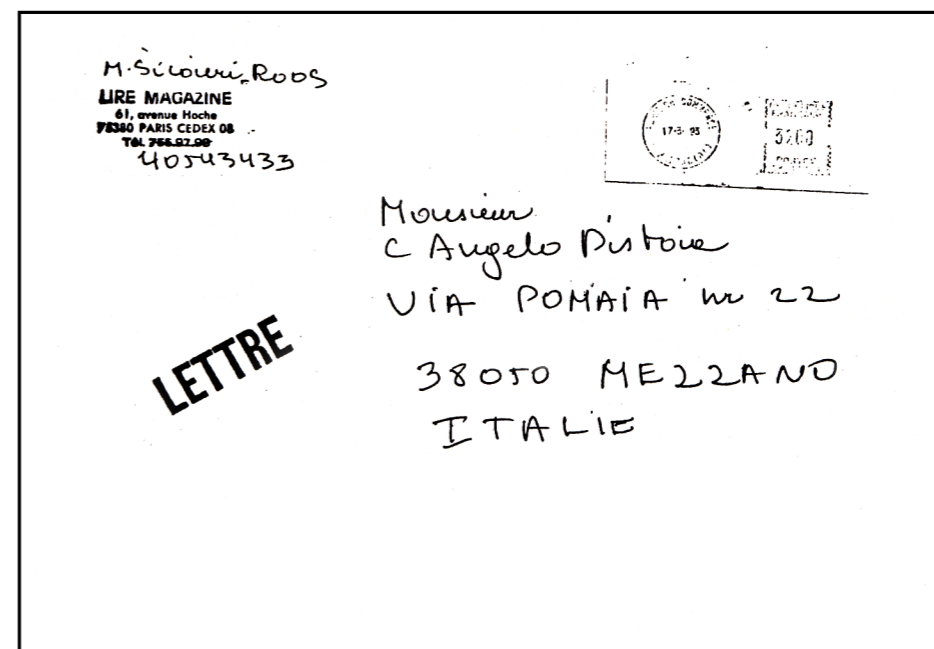 M. Sicouri-Roos
LIRE MAGAZINE
61, avenue Hoche
75380 PARIS CEDEX 08
Tél. 766.97.98
40543433
17-3- 93
Monsieur
C Angelo Pistoia
VIA POMAIA nr 22
LETTRE
38050 MEZZANO
ITALIE